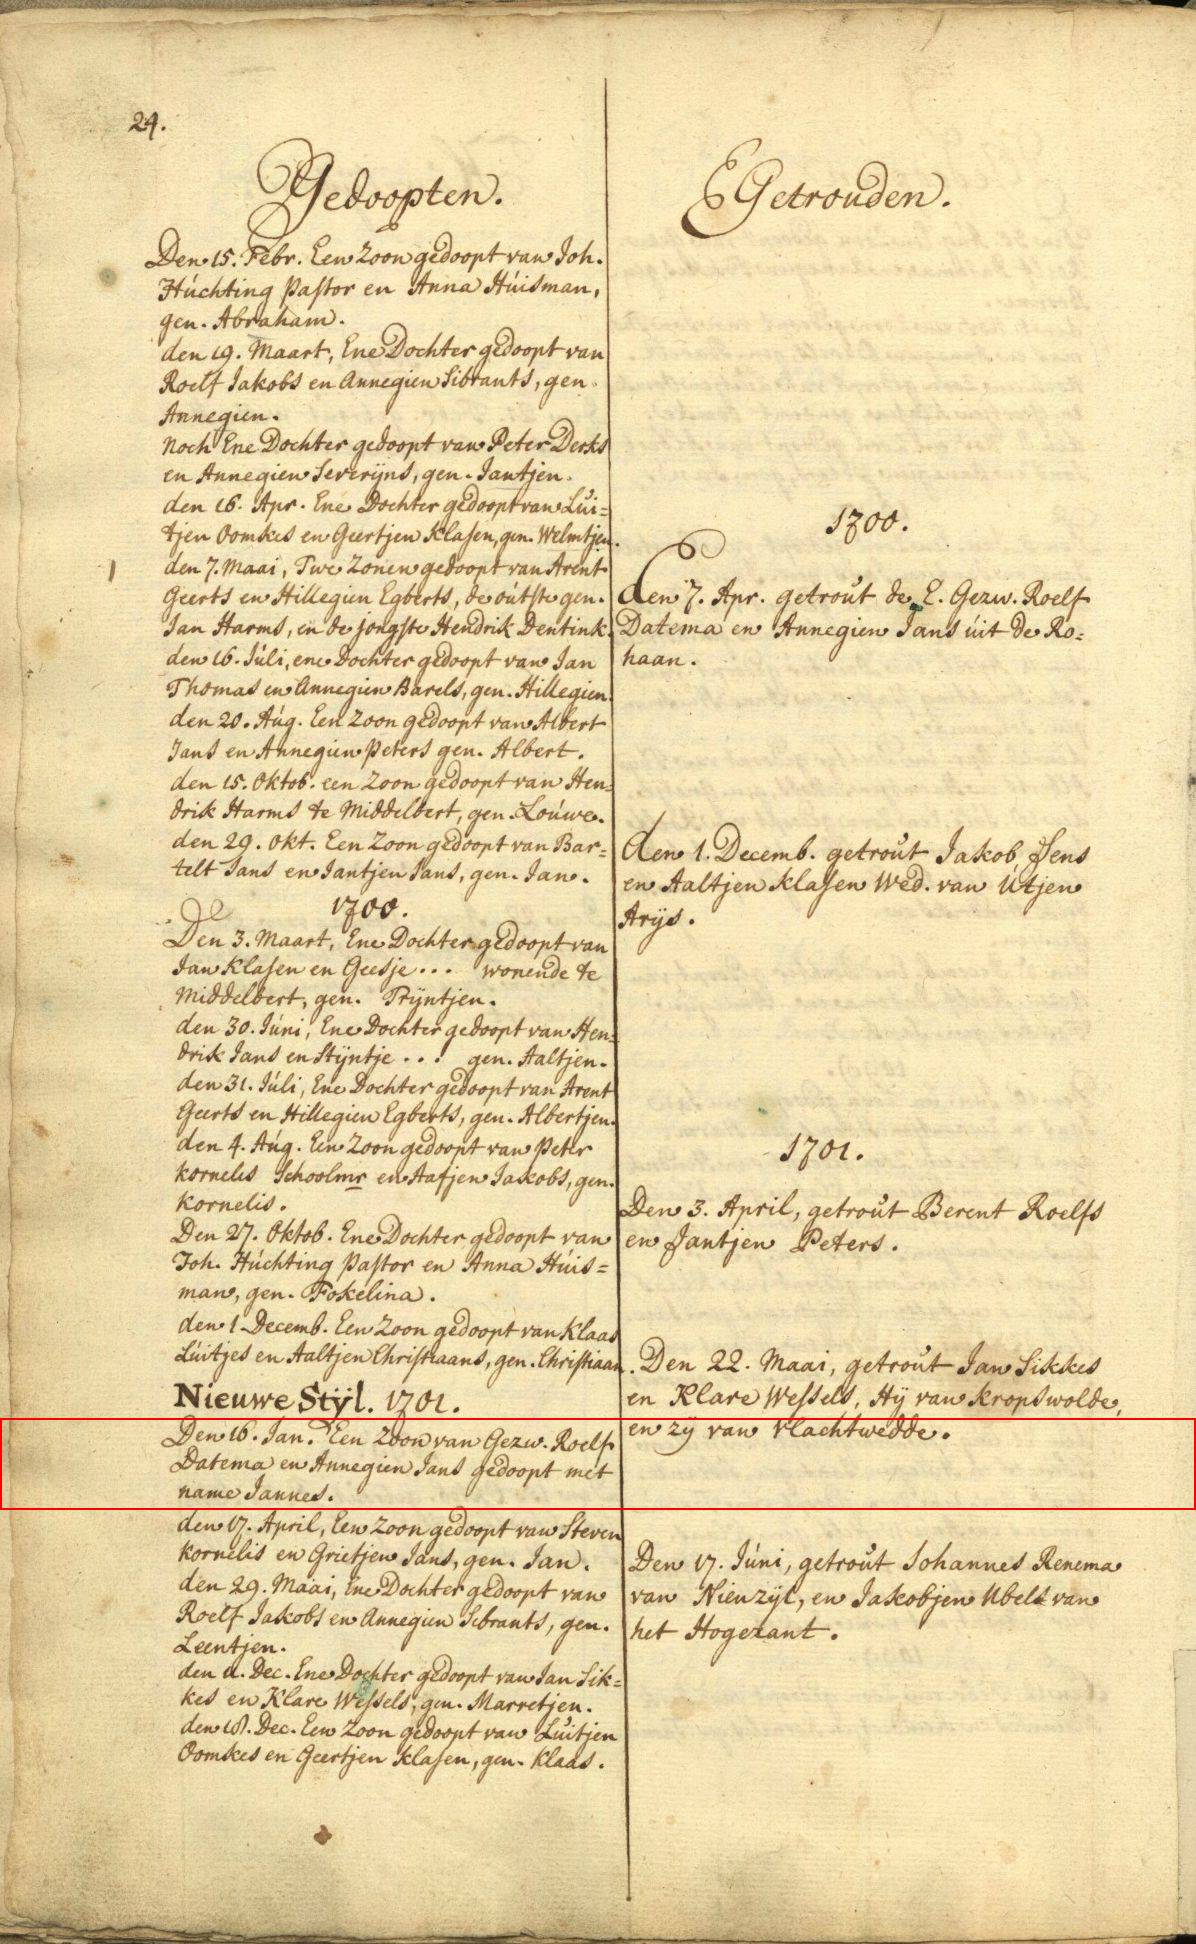 24.
Gedoopten.
Den 15. Febr. Een Zoon gedoopt van Joh.
Húchting Pastor en Anna Húisman,
gen. Abraham.
den 19. Maart, Ene Dochter gedoopt van
Roelf Jakobs en Annegien Sibrants, gen.
Annegien.
Noch Ene Dochter gedoopt van Peter Derks
en Annegien Severijns, gen. Jantjen.
den 16. Apr. Ene Dochter gedoopt van Lui=
tjen Oomkes en Geertjen Klasen, gen. Welmtjen.
den 7. Maai, Twe Zonen gedoopt van Arent
Geerts en Hillegien Egberts, de oútste gen.
Jan Harms, en de jongste Hendrik Dentink.
den 16. Júli, ene Dochter gedoopt van Jan
Thomas en Annegien Barels, gen. Hillegien.
den 20. Aúg. Een Zoon gedoopt van Albert
Jans en Annegien Peters gen. Albert.
den 15. Oktob. een Zoon gedoopt van Hen=
drik Harms te Middelbert, gen. Loúwe.
den 29. Okt. Een Zoon gedoopt van Bar=
telt Jans en Jantjen Jans, gen. Jan.
1700.
Den 3. Maart, Ene Dochter gedoopt van
Jan Klasen en Geesje ... wonende te
Middelbert, gen. Trijntjen.
den 30. Júni, Ene Dochter gedoopt van Hen=
drik Jans en Stijntje ... gen. Aaltjen.
den 31. Júli, Ene Dochter gedoopt van Arent
Geerts en Hillegien Egberts, gen. Albertjen.
den 4. Aúg. Een Zoon gedoopt van Peter
Kornelis Schoolmr en Aafjen Jakobs, gen.
Kornelis.
Den 27. Oktob. Ene Dochter gedoopt van
Joh. Húchting Pastor en Anna Húis=
man, gen. Fokelina.
den 1 Decemb. Een Zoon gedoopt van Klaas
Lúitjes en Aaltjen Christiaans, gen. Christiaan.
Nieuwe Stÿl. 1701.
Den 16. Jan. Een Zoon van Gezw. Roelf
Datema en Annegien Jans gedoopt met
name Jannes.
den 17. April, Een Zoon gedoopt van Steven
Kornelis en Grietjen Jans, gen. Jan.
den 29. Maai, Ene Dochter gedoopt van
Roelf Jakobs en Annegien Sibrants, gen.
Leentjen.
den 11. Dec. Ene Dochter gedoopt van Jan Sik=
kes en Klare Wessels, gen. Marretjen.
den 18. Dec. Een Zoon gedoopt van Luitjen
Oomkes en Geertjen Klasen, gen. Klaas.
Getrouden.
1700.
den 7. Apr. getrout de E. Gezw. Roelf
Datema en Annegien Jans úit de Ro=
haan.
den 1. Decemb. getrout Jakob Jens
en Aaltjen Klasen Wed. van Útjen
Arijs.
1701.
Den 3. April, getrout Berent Roelfs
en Jantjen Peters.
Den 22. Maai, getrout Jan Sikkes
en Klare Wessels, Hÿ van Kropswolde,
en zÿ van Vlachtwedde.
Den 17. Júni, getrout Johannes Renema
van Nienzÿl, en Jakobjen Ubels van
het Hogezant.